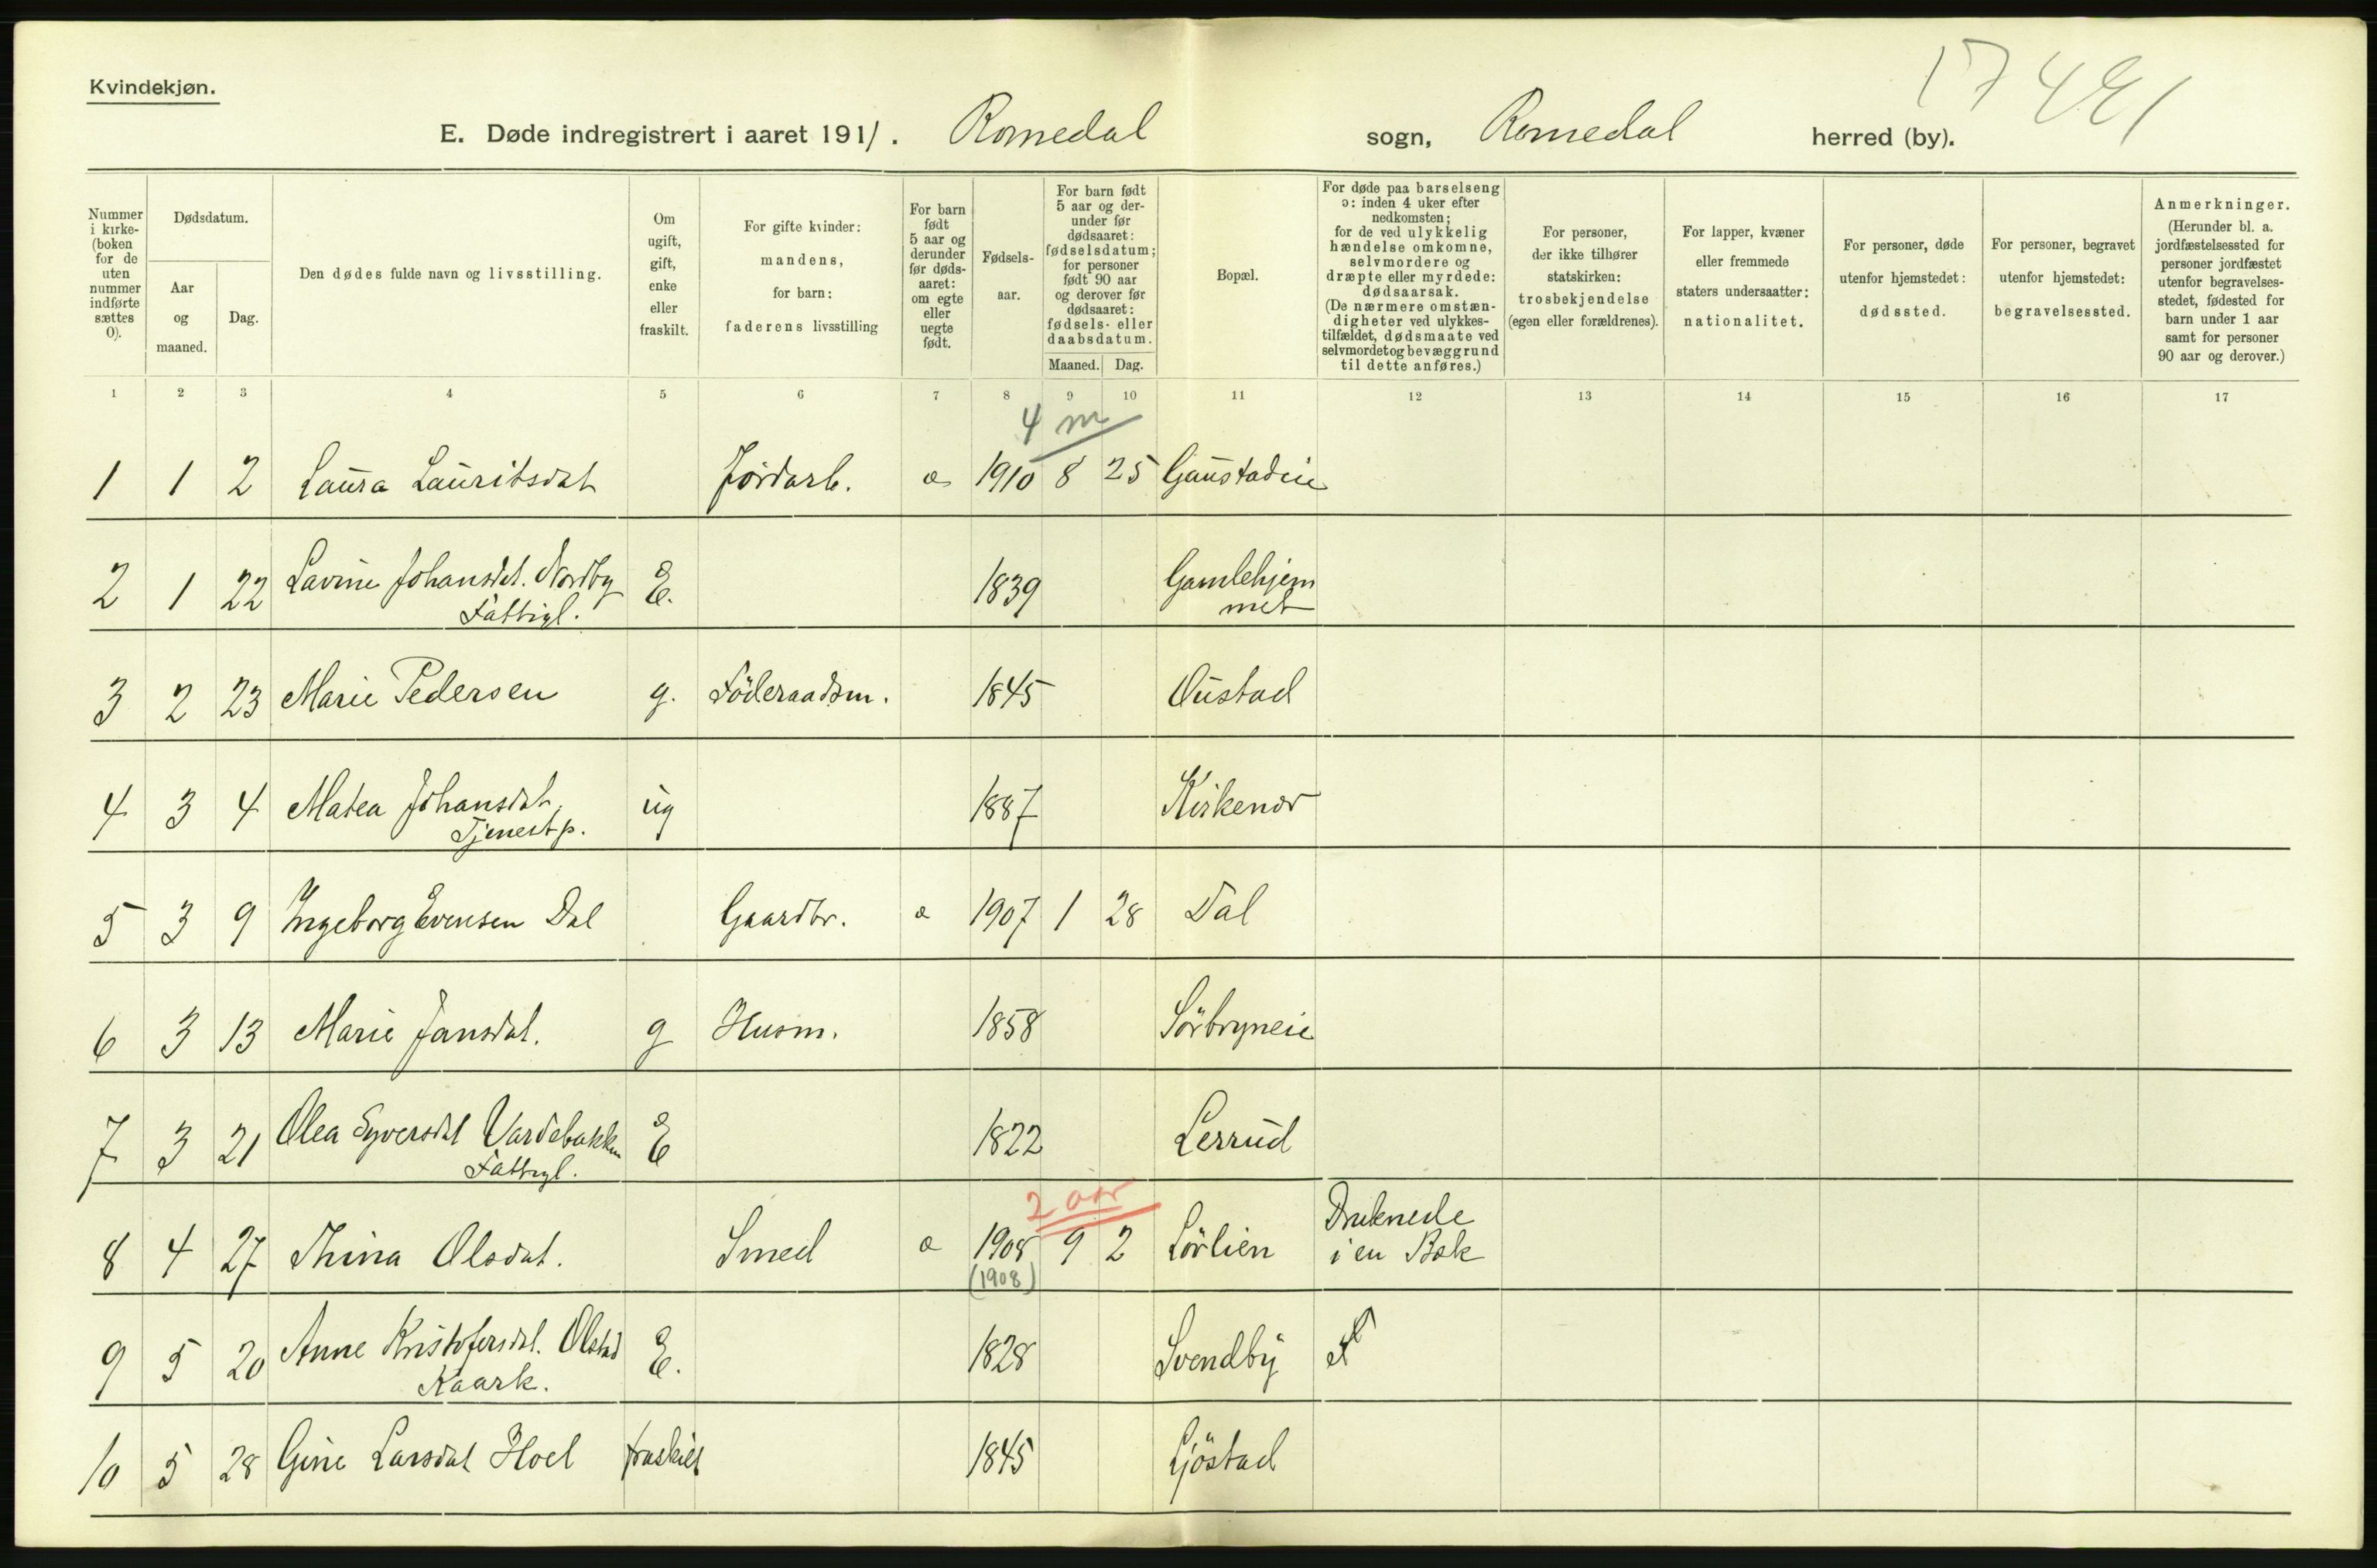 Kvindekjøn.
17 491
E. Døde indregistrert i aaret 1911. Romedal sogn, Romedal herred (by).
Nummer i kirke- (boken for de uten nummer indførte sættes 0).
Dødsdatum.
Aar og maaned.
Dag.
Den dødes fulde navn og livsstilling.
Om ugift, gift, enke eller fraskilt.
For gifte kvinder: mandens, for barn: faderens livsstilling
For barn født 5 aar og derunder før døds- aaret: om egte eller uegte født.
Fødsels- aar.
For barn født 5 aar og der- under før dødsaaret: fødselsdatum; for personer født 90 aar og derover før dødsaaret: fødsels- eller daabsdatum.
Maaned.
Dag.
Bopæl.
For døde paa barselseng ɔ: inden 4 uker efter nedkomsten; for de ved ulykkelig hændelse omkomne, selvmordere og dræpte eller myrdede: dødsaarsak. (De nærmere omstæn- digheter ved ulykkes- tilfældet, dødsmaate ved selvmordet og bevæggrund til dette anføres.)
For personer, der ikke tilhører statskirken: trosbekjendelse (egen eller forældrenes).
For lapper, kvæner eller fremmede staters undersaatter: nationalitet.
For personer, døde utenfor hjemstedet: dødssted.
For personer, begravet utenfor hjemstedet: begravelsessted.
Anmerkninger. (Herunder bl. a. jordfæstelsessted for personer jordfæstet utenfor begravelses- stedet, fødested for barn under 1 aar samt for personer 90 aar og derover.)
1 2 3 4 5 6 7 8 9 10 11 12 13 14 15 16 17
4 m
1 1 2 Laura Lauritsdat Jordarb. 1910 8 25 Gaustadeie
2 1 22 Lavine Johansdat. Nordby E. 1839 Gamlehjem
Fattigl. met
3 2 23 Marie Pedersen g. Föderaadsm. 1845 Oustad
4 3 4 Matea Johansdat, ug 1887 Kirkenær
Tjenestp.
5 3 9 Ingeborg Evensen Dal Gaardbr. 1907 1 28 Dal
6 3 13 Marie Jansdat. g Husm. 1858 Sörbryneie
7 3 21 Olea Syversdat Vardebakken E 1822 Lerrud
Fattigl.
2 aar
8 4 27 Thina Olsdat. Smed 1908 9 2 Lörlien Druknede
(1908) i en Bæk
9 5 20 Anne Kristofersdat. Olstad E. 1828 Svendby
Kaark.
10 5 28 Gine Larsdat Hoel fraskilt 1845 Ljöstad